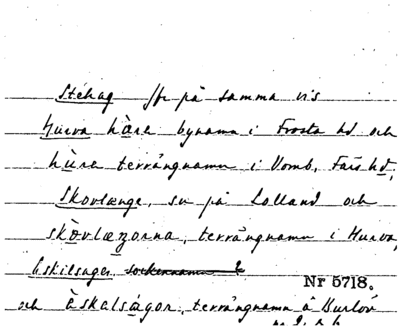 Stehag jfr på samma vis
Hurva hùra bynamn i Frosta hd och
hùra terrängnamn i Vomb, Färs hd,
Skovlænge, sn på Lolland och
skòvlæŋorna, terrängnamn i Hurva,
Eskilsager sockennamn
Nr 5718.
och èskalsågor, terrängnamn å Burlöv